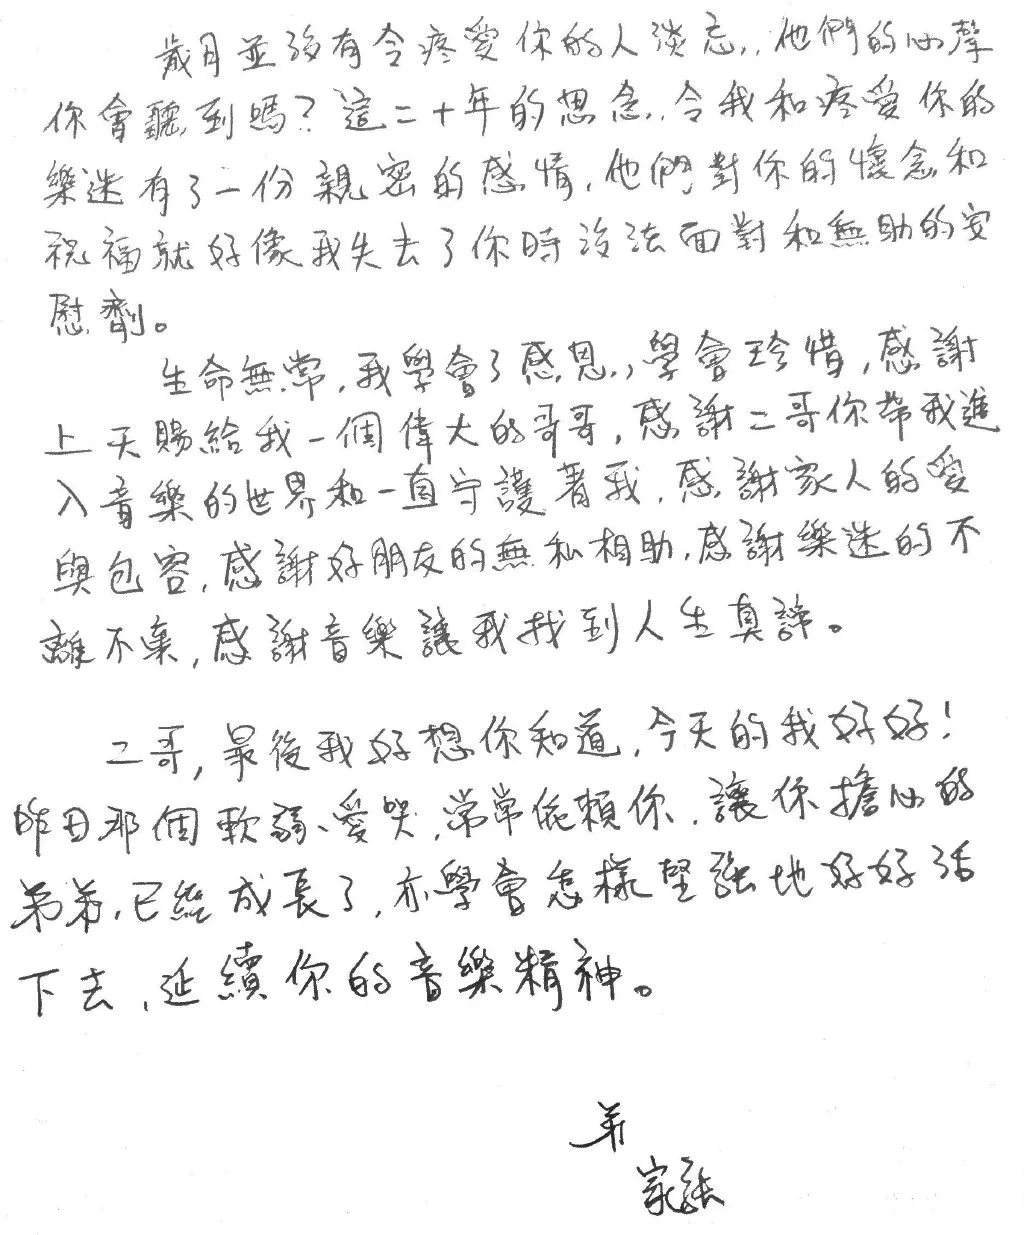 歲月並沒有令疼愛你的人淡忘,他們的心聲
你會聽到嗎?這二十年的思念,令我和疼愛你的
樂迷有了一份親密的感情,他們對你的懷念和
祝福就好像我失去了你時沒法面對和無助的安
慰劑。
生命無常,我學會了感恩,學會珍惜,感謝
上天賜給我一個偉大的哥哥,感謝二哥你帶我進
入音樂的世界和一直守護著我,感謝家人的愛
與包容,感謝好朋友的無私相助,感謝樂迷的不
離不棄,感謝音樂讓我找到人生真諦。
二哥,最後我好想你知道,今天的我好好!
昨日那個軟弱、愛哭,常常依賴你,讓你擔心的
弟弟,已經成長了,亦學會怎樣堅強地好好活
下去,延續你的音樂精神。
弟
家強